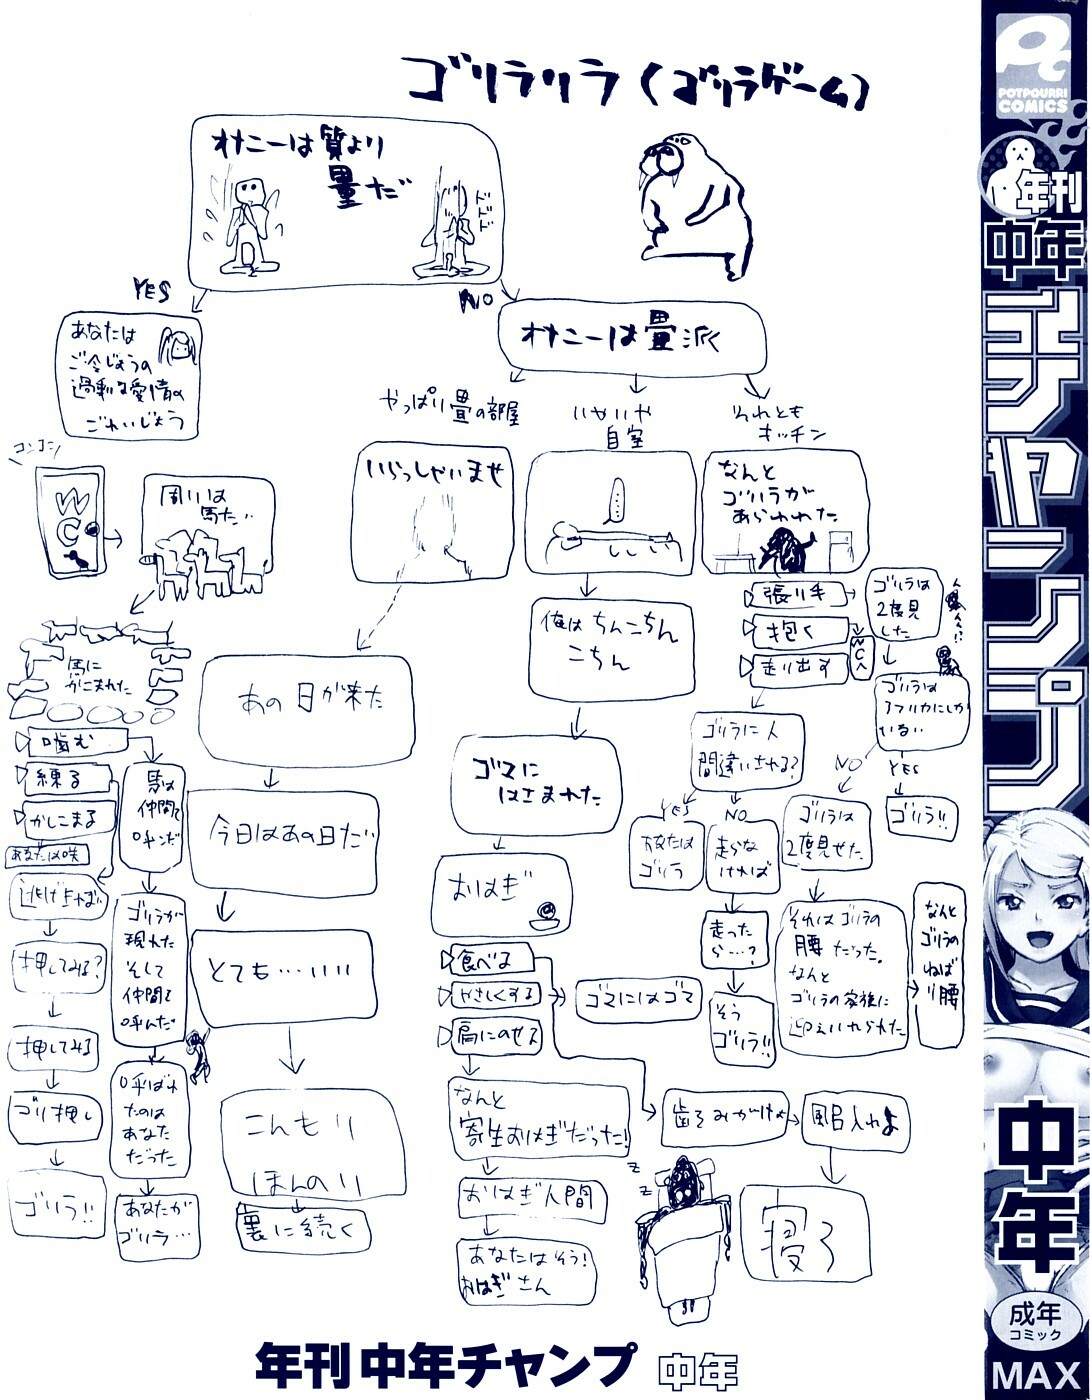 ゴリラリラ(ゴリラゲーム)
オナニーは質より
量だ
ゴゴゴ
YES
NO
あなたは
ご令じょうの
過剰な愛情の
ごれいじょう
オナニーは畳派
やっぱり畳の部屋
いやいや
自室
それとも
キッチン
コンコン
WC
周りは
馬だ…
いらっしゃいませ
なんと
ゴリラが
あらわれた
張り手
抱く
走り出す
WCへ
ゴリラは
2度見
した
ゴリラは
アフリカにしか
いない
NO
YES
ゴリラ!!
ゴリラは
2度見せた
それはゴリラの
腰だった。
なんと
ゴリラの家族に
迎えいれられた
なんと
ゴリラの
ねばり腰
ゴリラに人
間違いされる?
YES
NO
あなたは
ゴリラ
走らな
ければ
走った
ら…?
そう
ゴリラ!!
俺はちんこちん
こちん
ゴマに
はさまれた
おはぎ
食べる
やさしくする
肩にのせる
ゴマにはゴマ
なんと
寄生おはぎだった!
おはぎ人間
あなたはそう!
おはぎさん
歯をみがけよ
風呂入れよ
寝ろ
z
z
あの日が来た
今日はあの日だ
とても…いい
こんもり
ほんのり
裏に続く
馬に
かこまれた
噛む
練る
かしこまる
あなたは咲
逃げれば
押してみる?
押してみる
ゴリ押し
ゴリラ!!
馬は
仲間を
呼んだ
ゴリラが
現れた
そして
仲間を
呼んだ
呼ばれ
たのは
あなた
だった
あなたが
ゴリラ…
年刊中年チャンプ 中年
Pc
POTPOURRI
COMICS
年刊
中年
チャンプ
中年
成年
コミック
MAX